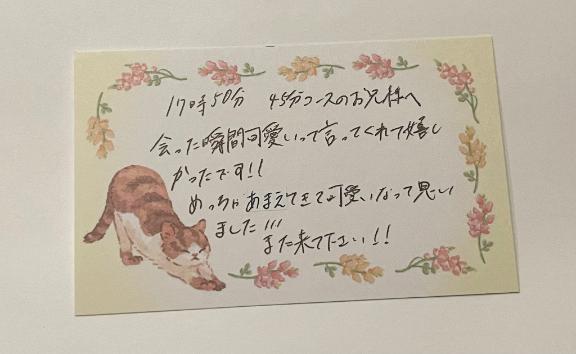 17時50分 45分コースのお兄様へ
会った瞬間可愛いって言ってくれて嬉し
かったです!!
めっちゃあまえてきて可愛いなって思い
ました!!!
また来て下さい!!